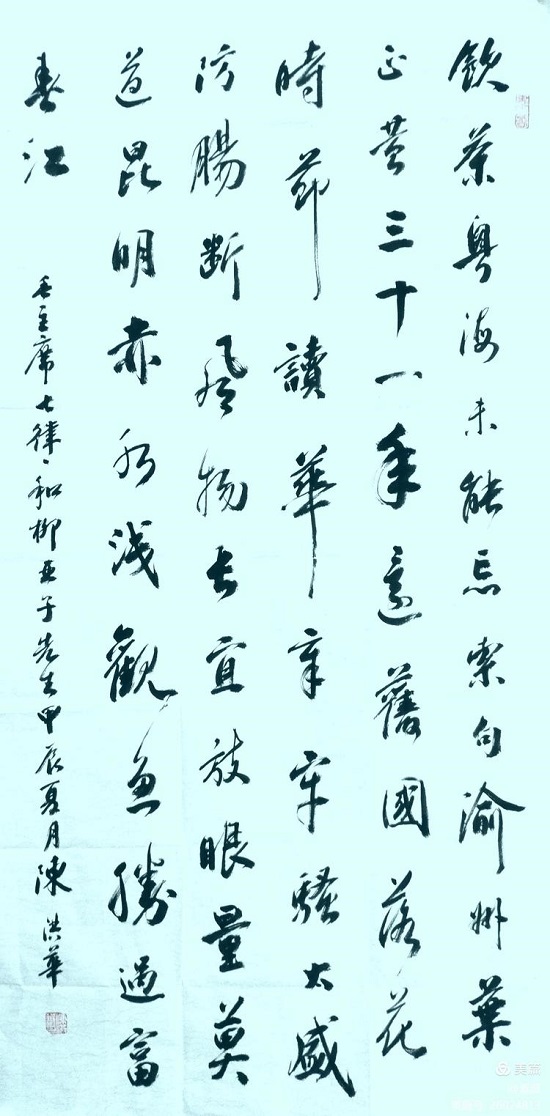 飲茶粤海未能忘索句渝州葉
正黄三十一年還舊國落花
時節讀華章牢騷太盛
防腸斷風物長宜放眼量莫
道昆明赤水浅觀魚勝過富
春江
毛主席七律、和柳亚子先生甲辰夏月陳洪華
美篇